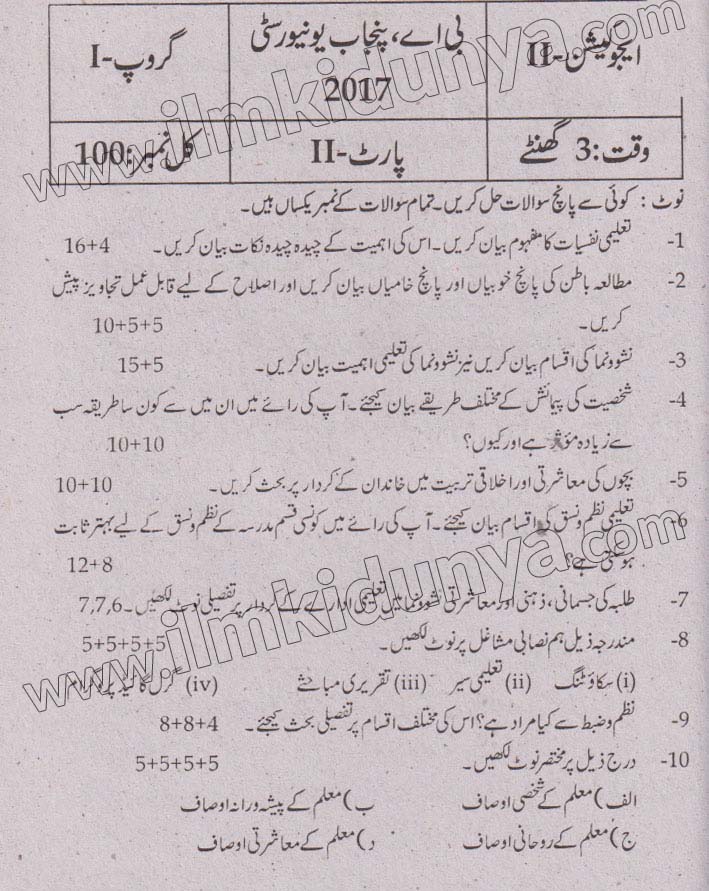 ایجوکیشن-II
بی اے، پنجاب یونیورسٹی 2017
گروپ-I
وقت: 3 گھنٹے
پارٹ-II
کل نمبر: 100
نوٹ: کوئی سے پانچ سوالات حل کریں۔ تمام سوالات کے نمبر یکساں ہیں۔
1- تعلیمی نفسیات کا مفہوم بیان کریں۔ اس کی اہمیت کے چیدہ چیدہ نکات بیان کریں۔ 16+4
2- مطالعہ باطن کی پانچ خوبیاں اور پانچ خامیاں بیان کریں اور اصلاح کے لیے قابل عمل تجاویز پیش
کریں۔ 10+5+5
3- نشوونما کی اقسام بیان کریں نیز نشوونما کی تعلیمی اہمیت بیان کریں۔ 15+5
4- شخصیت کی پیمائش کے مختلف طریقے بیان کیجئے۔ آپ کی رائے میں ان میں سے کون سا طریقہ سب
سے زیادہ مؤثر ہے اور کیوں؟ 10+10
5- بچوں کی معاشرتی اور اخلاقی تربیت میں خاندان کے کردار پر بحث کریں۔ 10+10
6- تعلیمی نظم و نسق کی اقسام بیان کیجئے۔ آپ کی رائے میں کونسی قسم مدرسہ کے نظم و نسق کے لیے بہتر ثابت
ہو سکتی ہے؟ 12+8
7- طلبہ کی جسمانی، ذہنی اور معاشرتی نشوونما میں تعلیمی ادارے کے کردار پر تفصیلی نوٹ لکھیں۔ 7,7,6
8- مندرجہ ذیل ہم نصابی مشاغل پر نوٹ لکھیں۔ 5+5+5+5
(i) سکاؤٹنگ (ii) تعلیمی سیر (iii) تقریری مباحثے (iv) گرل گائیڈ پروگرام
9- نظم و ضبط سے کیا مراد ہے؟ اس کی مختلف اقسام پر تفصیلی بحث کیجئے۔ 8+8+4
10- درج ذیل پر مختصر نوٹ لکھیں۔ 5+5+5+5
الف) معلم کے شخصی اوصاف ب) معلم کے پیشہ ورانہ اوصاف
ج) معلم کے روحانی اوصاف د) معلم کے معاشرتی اوصاف
www.ilmkidunya.com
www.ilmkidunya.com